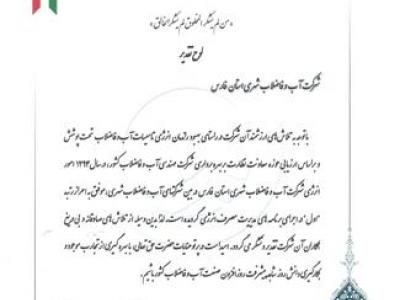 «من لم یشکر المخلوق لم یشکر الخالق»
لوح تقدیر
شرکت آب و فاضلاب شهری استان فارس
با توجه به تلاش های ارزشمند آن شرکت در راستای بهبود راندمان انرژی تاسیسات آب و فاضلاب تحت پوشش
و بر اساس ارزیابی حوزه معاونت نظارت بر بهره برداری شرکت مهندسی آب و فاضلاب کشور، در سال ۱۳۹۳ امور
انرژی شرکت آب و فاضلاب شهری استان فارس در بین شرکتهای آب و فاضلاب شهری، موفق به احراز رتبه
«اول» در اجرای برنامه های مدیریت مصرف انرژی گردیده است. لذا بدین وسیله از تلاش های صادقانه و بی دریغ
همکاران آن شرکت تقدیر و تشکر می گردد. امید است در پرتو عنایات حضرت حق تعالی، با بهره گیری از تجارب موجود و
بکارگیری دانش روز شاهد پیشرفت روز افزون صنعت آب و فاضلاب کشور باشیم.